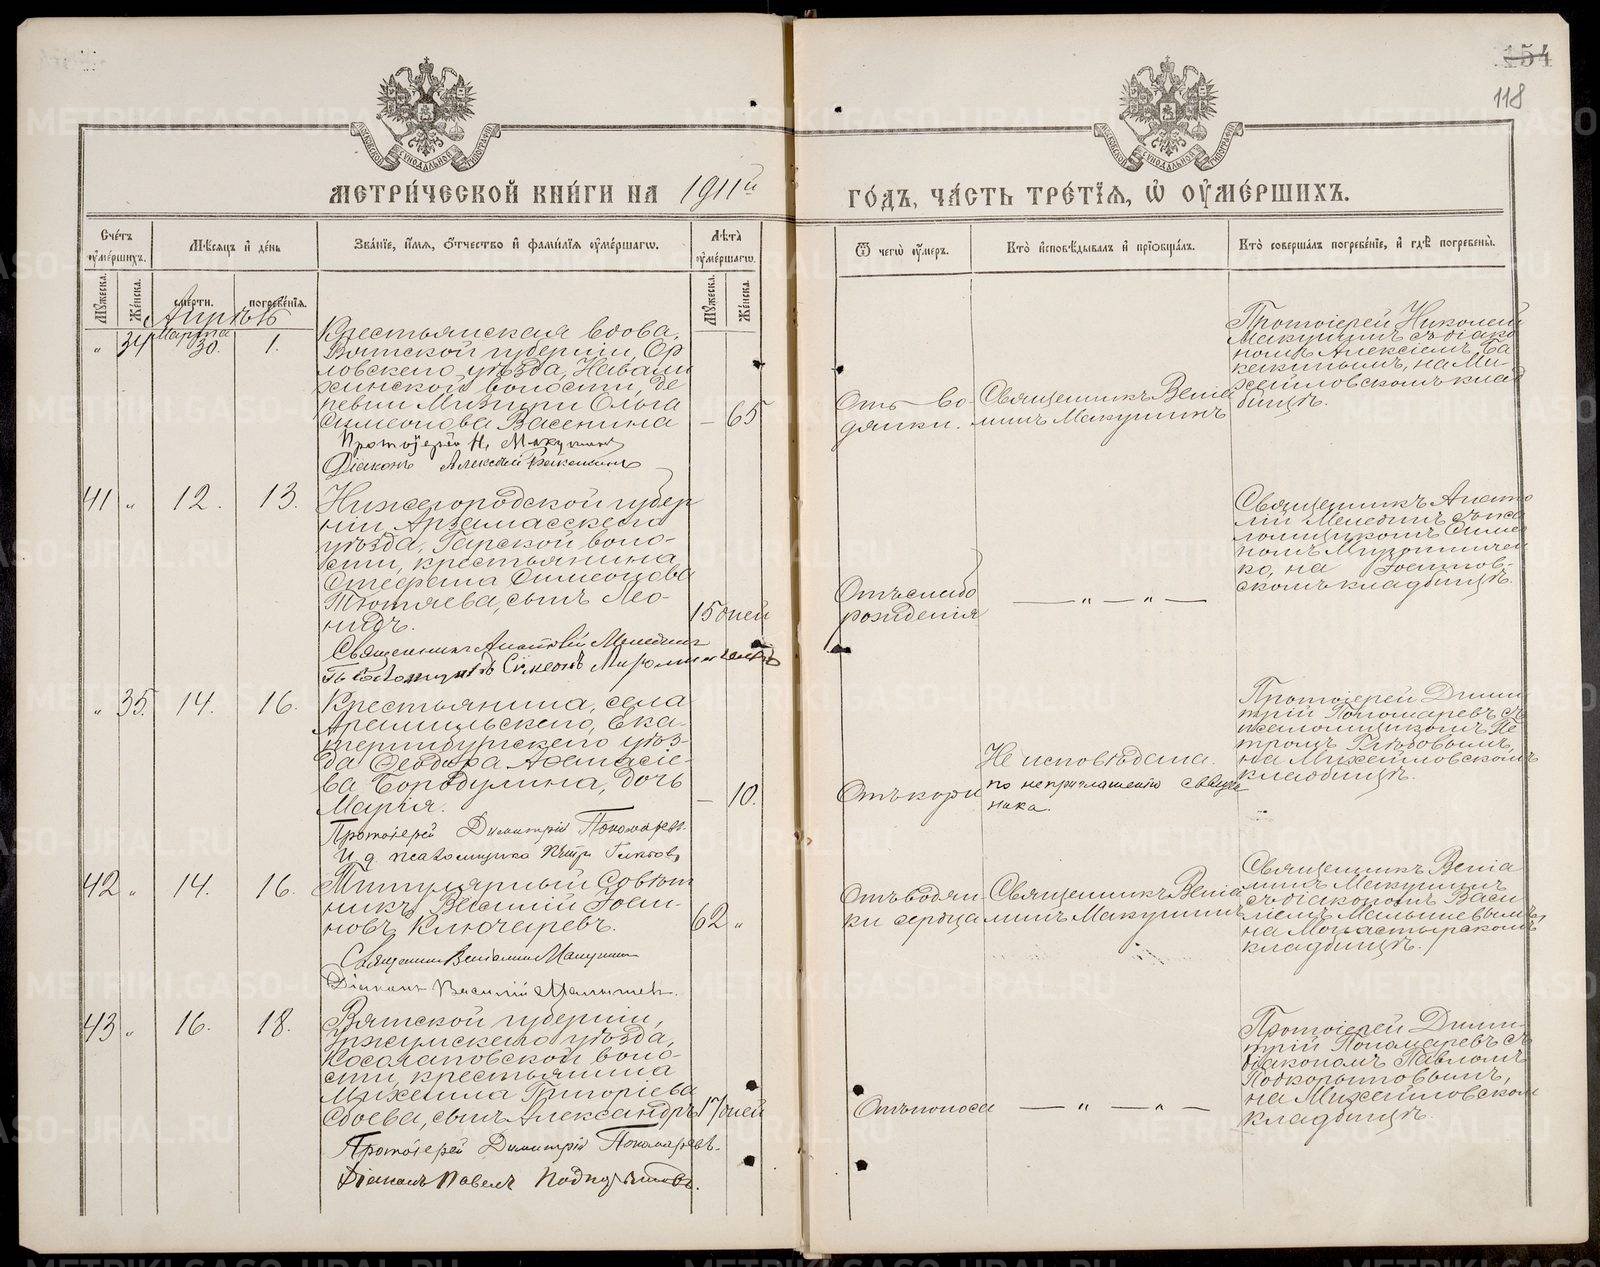 154
118
МЕТРИ́ЧЕСКОЙ КНИ́ГИ НА 1911й
ГО́ДЪ, ЧА́СТЬ ТРЕ́ТІЯ, Ѡ ОУМЕ́РШИХЪ.
Сче́тъ оуме́ршихъ.
Мѣсяцъ и де́нь
Зва́ніе, и́мя, о́тчество и фами́лія оуме́ршагѡ.
Лѣта̀ оуме́ршагѡ.
Ѿ чегѡ̀ оу́меръ.
Кто̀ исповѣ́дывалъ и прїобща́лъ.
Кто̀ совершалъ погребе́ніе, и гдѣ̀ погребены̀.
Мꙋ́жеска.
Же́нска.
сме́рти.
погребе́нія.
Мꙋ́жеска.
Же́нска.
Апрѣль
„ 34
Марта
30.
1.
Крестьянская вдова,
Вятской губерніи, Ор
ловскаго уѣзда,
волости, де
ревни Ольга
Симеонова Васенина
— 65
Протоіерей Н. Макушинъ
Діаконъ Алексѣй
Отъ во
дянки.
Священникъ Веніа
минъ Макушинъ
Протоіерей Николай
Макушинъ съ діако
номъ Алексіемъ
на Ми
хайловскомъ клад
бищѣ.
41 „
12.
13.
Нижегородской губер
ніи Арзамасскаго
уѣзда, Гарской воло-
сти, крестьянина
Стефана Симеонова
Тютяева, сынъ Лео-
нидъ.
15 дней
Священникъ Анатолій
Псаломщикъ Симеонъ
Отъ слабо
рожденія
— „ — „ —
Священникъ Анато
лій съ пса
ломщикомъ Симео
номъ
ко, на Іоаннов-
скомъ кладбищѣ.
„ 35.
14.
16.
Крестьянина, села
Арамильскаго, Ека-
теринбургскаго уѣз-
да Ѳеодора Аѳанасіе-
ва Бородулина, дочь
Марія.
— 10.
Протоіерей Димитрій Пономаревъ.
И. д. псаломщика Петръ Глѣбовъ
Отъ кори
Не исповѣдана.
по неприглашенію священ
ника.
Протоіерей Дими
трій Пономаревъ съ
псаломщикомъ Пе
тромъ Глѣбовымъ,
на Михайловскомъ
кладбищѣ.
42 „
14.
16.
Титулярный совѣт
никъ Василій Іоан-
новъ Ключаревъ.
62 „
Священникъ Веніаминъ Макушинъ
Діаконъ Василій Малышевъ.
Отъ водян
ки сердца
Священникъ Веніа
минъ Макушинъ
Священникъ Веніа
минъ Макушинъ
съ діакономъ Васи
ліемъ Малышевымъ,
на Монастырскомъ
кладбищѣ.
43 „
16.
18.
Вятской губерніи,
Уржумскаго уѣзда,
Косолаповской воло-
сти, крестьянина
Михаила Григоріева
Сбоева, сынъ Александръ
17 дней
Протоіерей Димитрій Пономаревъ.
Діаконъ Павелъ Подкорытовъ.
Отъ поноса
— „ — „ —
Протоіерей Дими-
трій Пономаревъ съ
діакономъ Павломъ
Подкорытовымъ,
на Михайловском
кладбищѣ.
METRIKI.GASO-URAL.RU